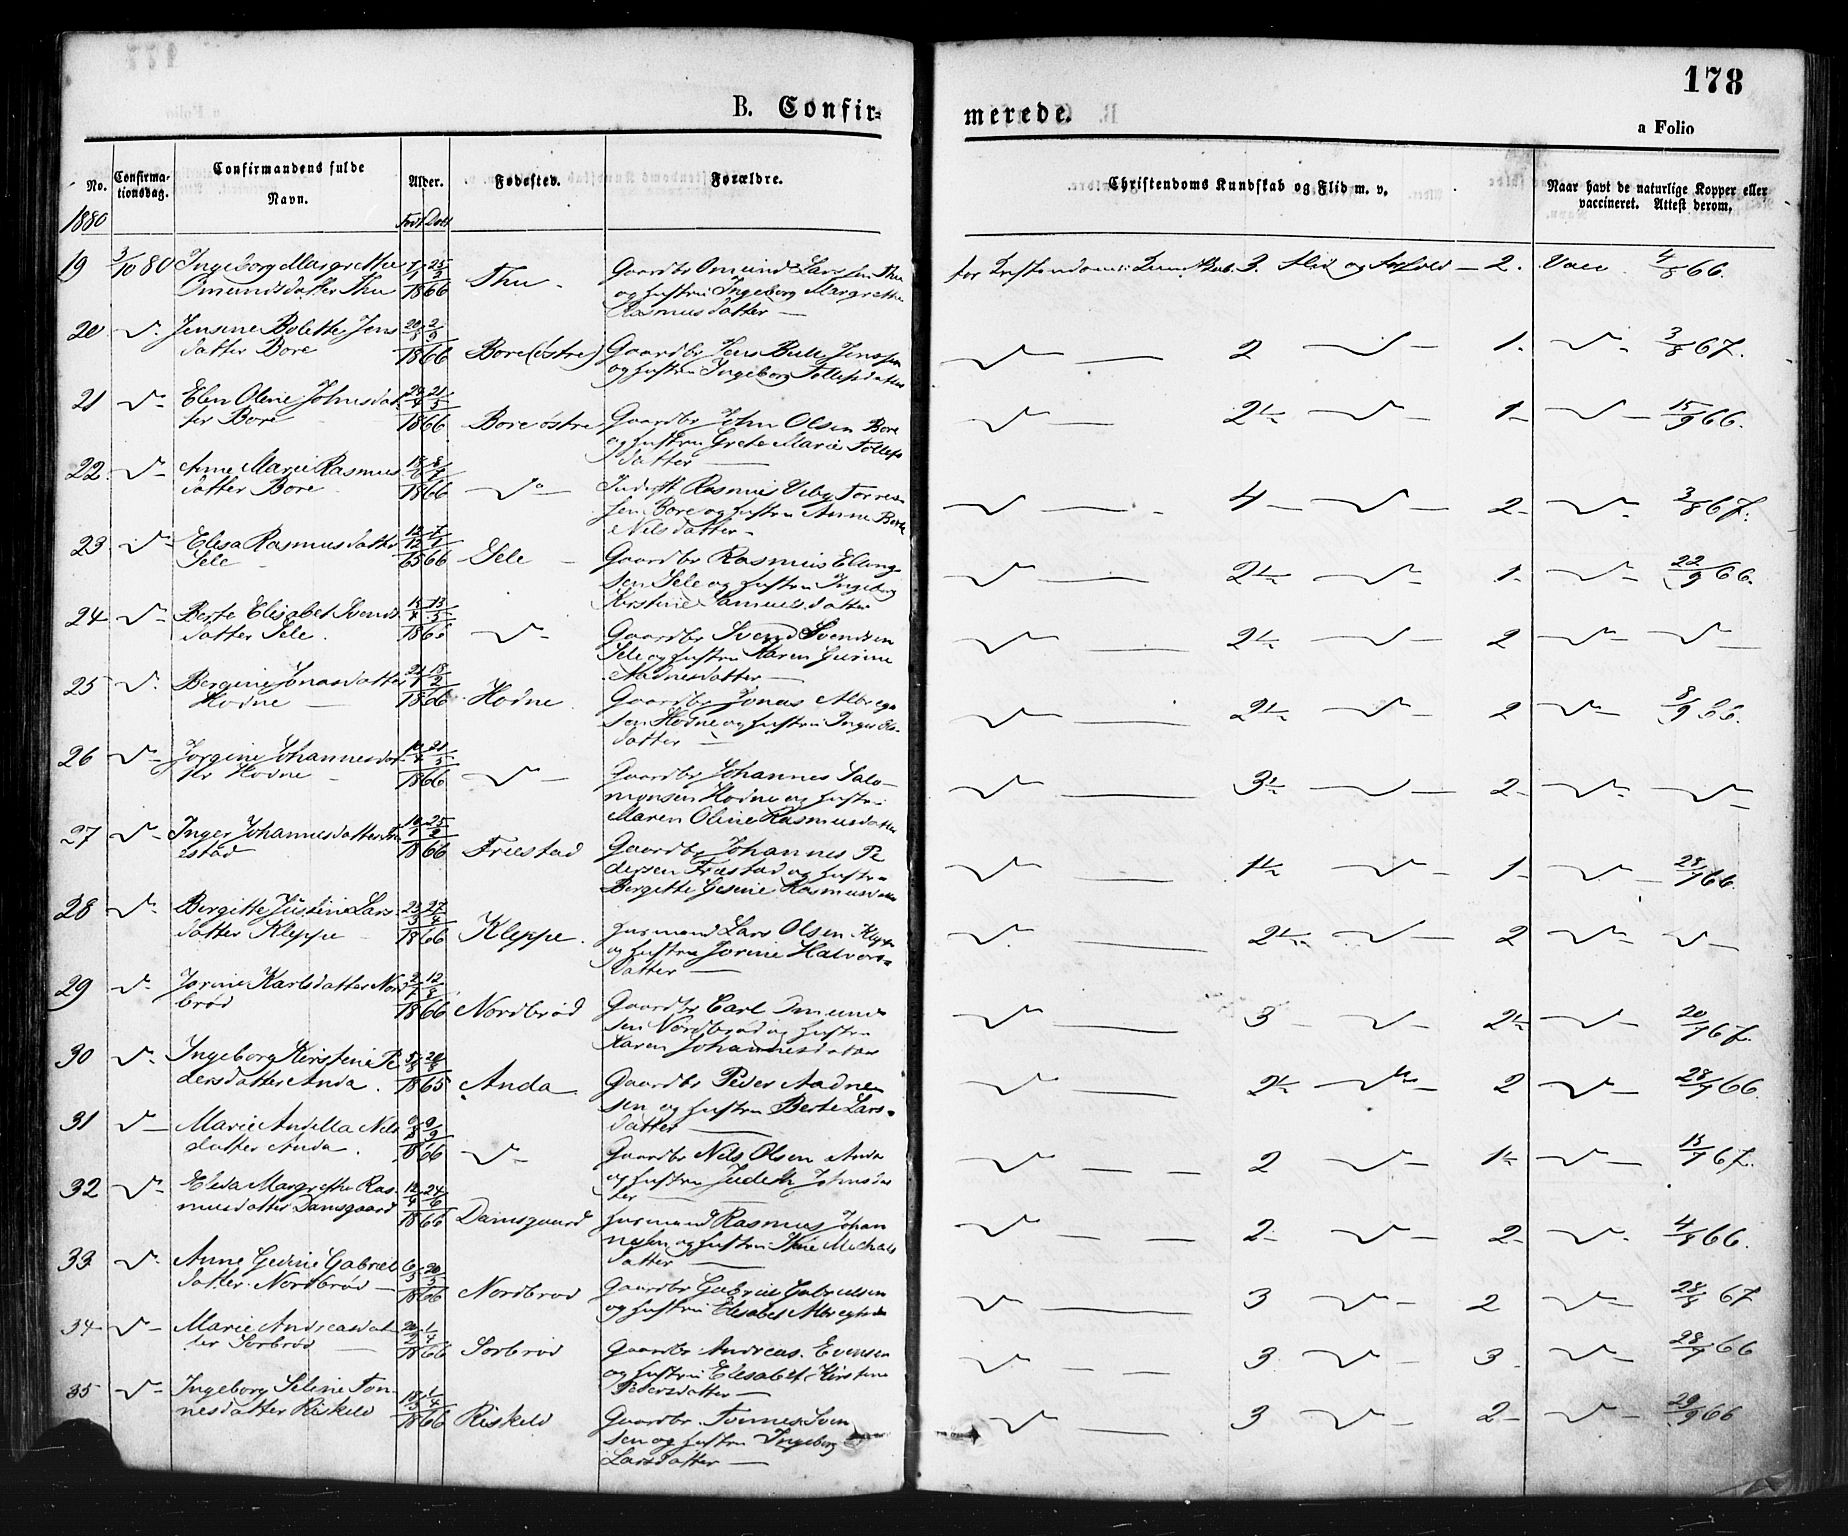 178
B. Confir-
merede.
a Folio
No.
Confirma-
tionsdag.
Confirmandens fulde
Navn.
Alder.
Fødested.
Forældre.
Christendoms Kundskab og Flid m. v.
Naar havt de naturlige Kopper eller
vaccineret. Attest derom.
1880
Født Døbt
19 3/10 80 Ingeborg Margrethe
Omundsdatter Thu
1866
Thu
Gaardbr Omund Larssen Thu
og hustru Ingeborg Margrethe
Rasmusdatter
for Kristendoms Kundskab 3. Flid og Forhold - 2. Vacc 4/8 66.
20 Jensine Bolette Jens
datter Bore
20/3 2/3
1866
Bore (østre)
Gaardbr Jens Bull Jenssen
og hustru Ingeborg Tollefsdatter
2 1 3/8 67.
21 Elen Oline Johnsdat
ter Bore
1866
Bore østre
Gaardbr John Olsen Bore
og hustru Grete Marie Tollefs
datter
2 1/2 1 15/9 66.
22 Anne Marie Rasmus
datter Bore
1866
Rasmus Torres
sen Bore og hustru Anne Berte
Nilsdatter
4 2 3/8 67.
23 Elisa Rasmusdatter
Sele
12/12 7/1
65 66
Sele
Gaardbr Rasmus Elling
sen Sele og hustru Ingeborg
Kirstine Samuelsdatter
2 1/2 1 22/9 66.
24 Berte Elisabet Svends
datter Sele.
1866
Gaardbr Svend Svendsen
Sele og hustru Karen Gurine
Aadnesdatter
2 1/2 2
25 Bergine Jonasdatter
Hodne
21/1 18/2
1866
Hodne
Gaardbr Jonas Albregt
sen Hodne og hustru Inger Ols
datter
2 1/2 2 8/9 66.
26 Jorgine Johannesdat
ter Hodne
1866
Gaardbr Johannes Salo-
monsen Hodne og hustru
Maren Oline Rasmusdatter
3 1/2 2
27 Inger Johannesdatter Fri
estad
19/1 25/2
1866
Friestad
Gaardbr Johannes Pe
dersen Friestad og hustru
Bergitte Gesine Rasmusdatter
1 1/2 1 28/9 66.
28 Bergitte Justine Lars-
datter Kleppe
23/3 27/4
1866
Kleppe.
Husmand Lars Olsen Kleppe
og hustru Jorine Halvors-
datter
2 1/2 2
29 Jorine Karlsdatter Nord
brød
1866
Nordbrød
Gaardbr Carl Omunds
sen Nordbrød og hustru
Karen Johannesdatter
3 2 1/2 20/9 67.
30 Ingeborg Kirstine Pe
dersdatter Anda.
1865
Anda
Gaardbr Peder Aadne
sen og hustru Berte Lars-
datter
2 1/2 2 28/9 66
31 Marie Andella Nils
datter Anda.
1866
Gaardbr Nils Olsen Anda
og hustru Judith Johnsdat
ter
2 1 1/2 15/9 67.
32 Elida Margrethe Ras-
musdatter Damsgaard
12/4 24/6
1866
Damsgaard
Husmand Rasmus Johan
nesen og hustru Michals
datter
2 2 4/8 66.
33 Anne Gurine Gabriel
datter Nordbrød
6/3 20/5
1866
Nordbrød
Gaardbr Gabriel Gabrielsen
og hustru Elisabet Albregtsdr
3 2 28/8 67
34 Marie Andreasdat
ter Sorbrød
20/2 1/4
1866
Sorbrød
Gaardbr Andreas Evensen
og hustru Elisabet Kirstine
Pedersdatter
3 3 28/9 66
35 Ingeborg Seline Ton-
nesdatter Riskeld
18/3 1/4
1866
Riskeld
Gaardbr. Tonnes Sven
sen og hustru Ingeborg
Larsdatter
3 2 29/9 66